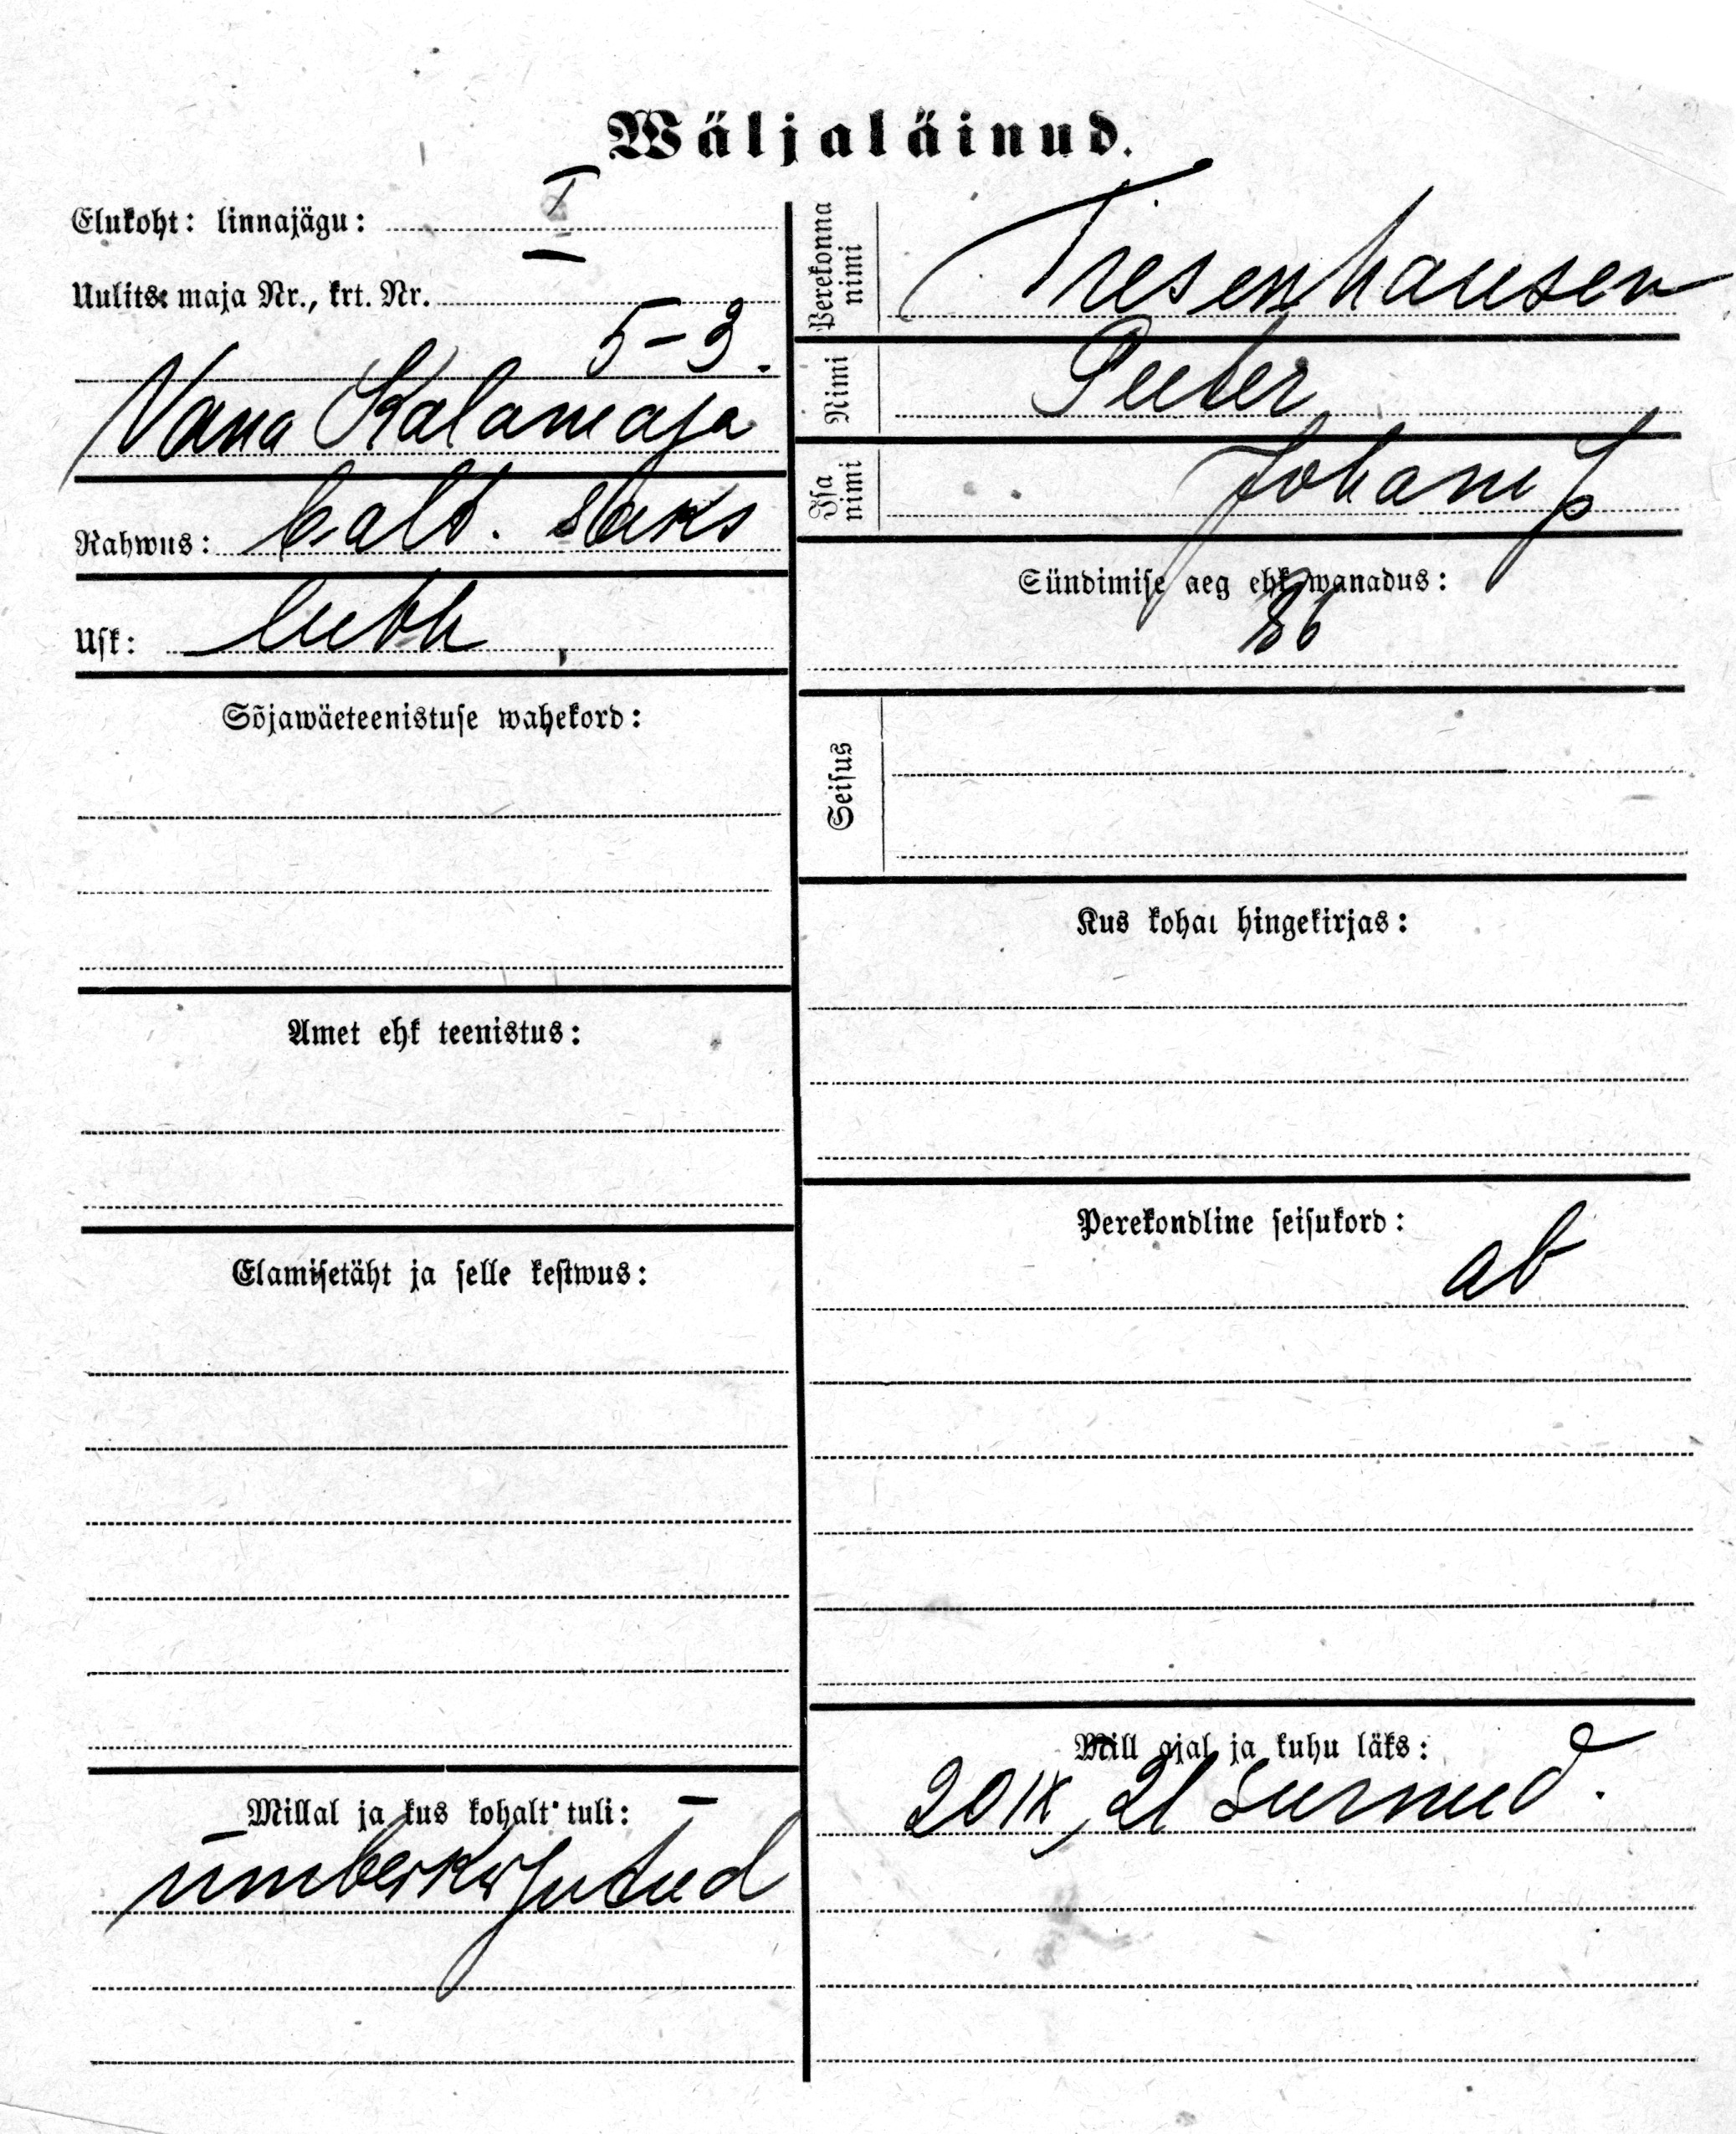 Wäljaläinud.
Elukoht: linnajägu: I
Uulits: maja Nr., krt. Nr.
5-3.
Vana Kalamaja
Rahwus: balt. saks
Usk: luth
Sõjawäeteenistuse wahekord:
Amet ehk teenistus:
Elamisetäht ja selle kestwus:
Millal ja kus kohalt tuli:
ümberkirjutud
Perekonna
nimi
Tiesenhausen
Nimi Peeter
Isa
nimi
Johani p
Sündimise aeg ehk wanadus:
86
Seisus
Kus kohal hingekirjas:
Perekondline seisukord:
ab
Mill ajal ja kuhu läks:
20 IX, 21 surnud.